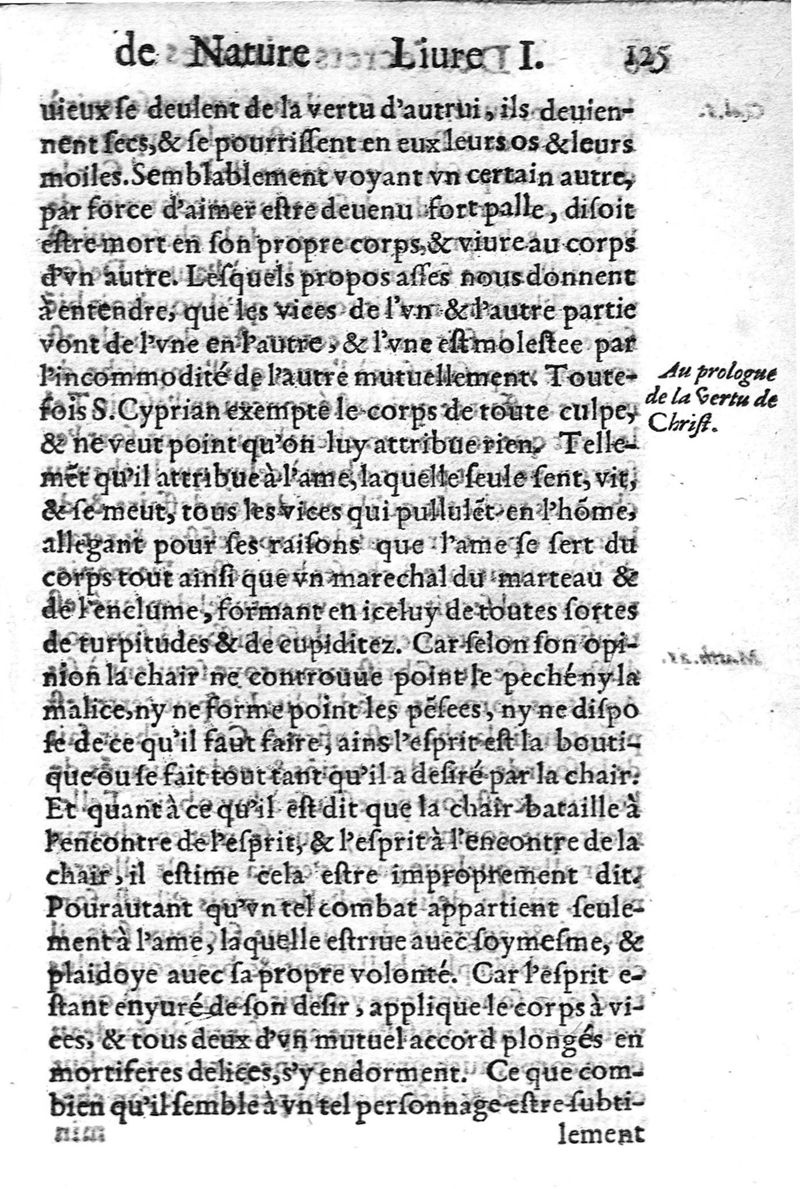 de Nature Liure I. 125
uieux se deulent de la vertu d'autrui, ils deuien-
nent secs, & se pourrissent en eux leurs os & leurs
moiles. Semblablement voyant vn certain autre,
par force d'aimer estre deuenu fort palle, disoit
estre mort en son propre corps, & viure au corps
d'vn autre. Lesquels propos asses nous donnent
à entendre, que les vices de l'vn & l'autre partie
vont de l'vne en l'autre, & l'vne est molestee par
l'incommodité de l'autre mutuellement. Toute-
fois S. Cyprian exempte le corps de toute culpe,
& ne veut point qu'on luy attribue rien. Telle-
mēt qu'il attribue à l'ame, laquelle seule sent, vit,
& se meut, tous les vices qui pullulēt en l'hōme,
allegant pour ses raisons que l'ame se sert du
corps tout ainsi que vn marechal du marteau &
de l'enclume, formant en iceluy de toutes sortes
de turpitudes & de cupiditez. Car selon son opi-
nion la chair ne controuue point le peché ny la
malice, ny ne forme point les pēsees, ny ne dispo
se de ce qu'il faut faire, ains l'esprit est la bouti-
que ou se fait tout tant qu'il a desiré par la chair.
Et quant à ce qu'il est dit que la chair bataille à
l'encontre de l'esprit, & l'esprit à l'encontre de la
chair, il estime cela estre improprement dit.
Pourautant qu'vn tel combat appartient seule-
ment à l'ame, laquelle estriue auec soymesme, &
plaidoye auec sa propre volonté. Car l'esprit e-
stant enyuré de son desir, applique le corps à vi-
ces, & tous deux d'vn mutuel accord plongés en
mortiferes delices, s'y endorment. Ce que com-
bien qu'il semble à vn tel personnage estre subti-
lement
Au prologue
de la Vertu de
Christ.